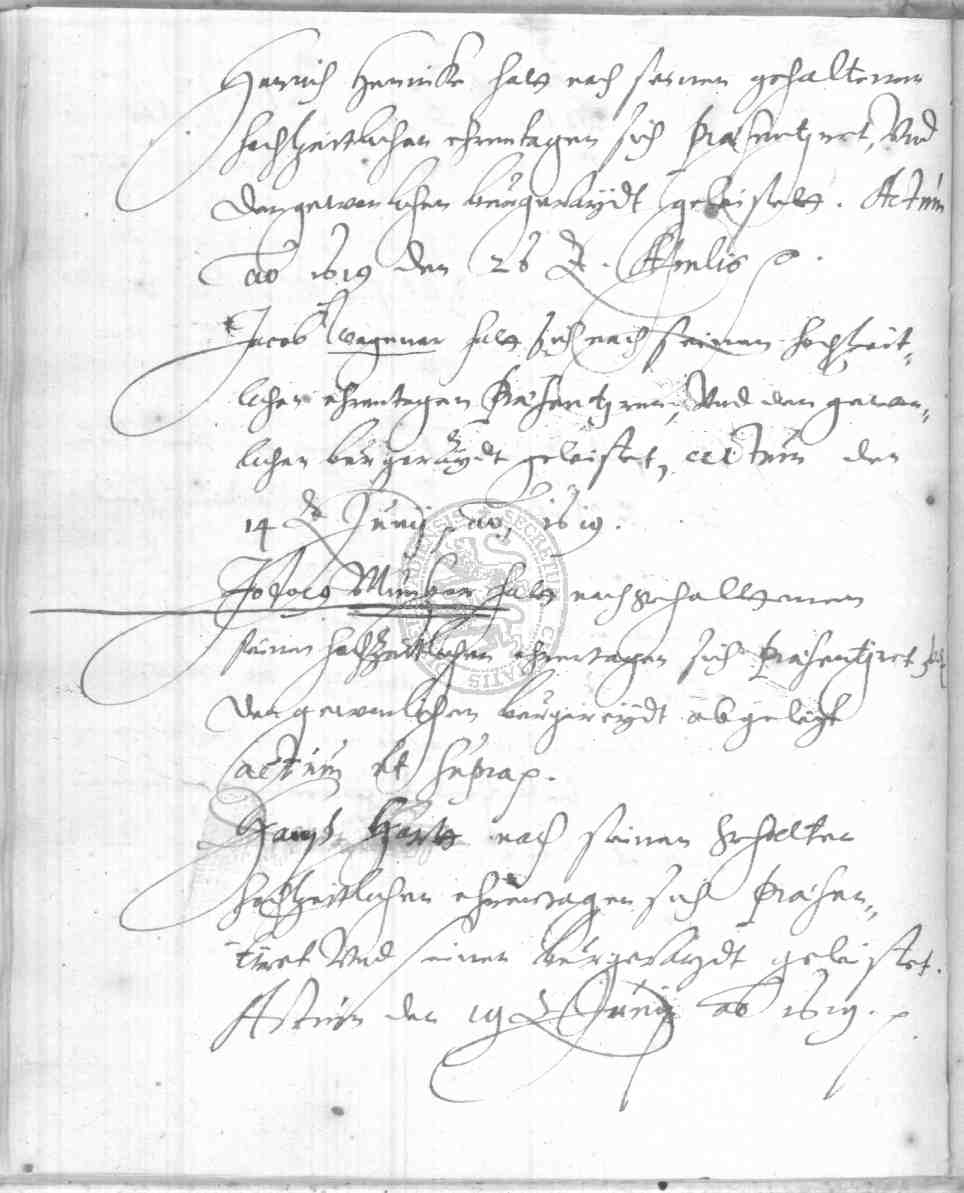 Henrich Henricke hatt nach seinen gehaltenen
hochzeittlichen ehrentagen sich præsentiret, Vnd
den gewonlichen bürgeraÿdt geleistett. Actum
ao 1619 den 26 Aprilis
Jacob Wagener hatt sich nach seinen hochzeit-
lichen ehrentagen Præsentiren, Vnd den gewon-
lichen bürgeraÿdt geleistet, actum den
14 Junij ao 1619.
Jodocus Müncker hatt nach gehalttenen
seinen hochzeittlichen ehrentagen sich Præsentiret
den gewonlichen bürgereÿdt abgelegt
actum ut supra.
Hanß nach seinen gehalten
hochzeittlichen ehrentagen sich Præsen-
tiret Vnd seinen bürgeraÿdt geleistet.
Actum den 19 Junij ao 1619.